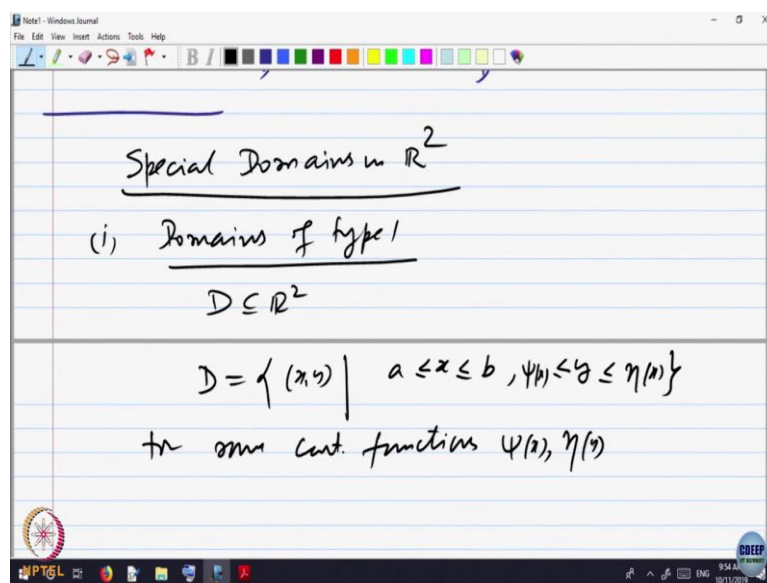 Note1 - Windows Journal
File Edit View Insert Actions Tools Help
B I
Special Domains in ℝ²
(i) Domains of type 1
D ⊆ ℝ²
D = { (x,y) | a ≤ x ≤ b, ψ(x) ≤ y ≤ η(x) }
for some cont. functions ψ(x), η(y)
NPTEL
CDEEP
IIT BOMBAY
ENG
9:54 AM
10/11/2019